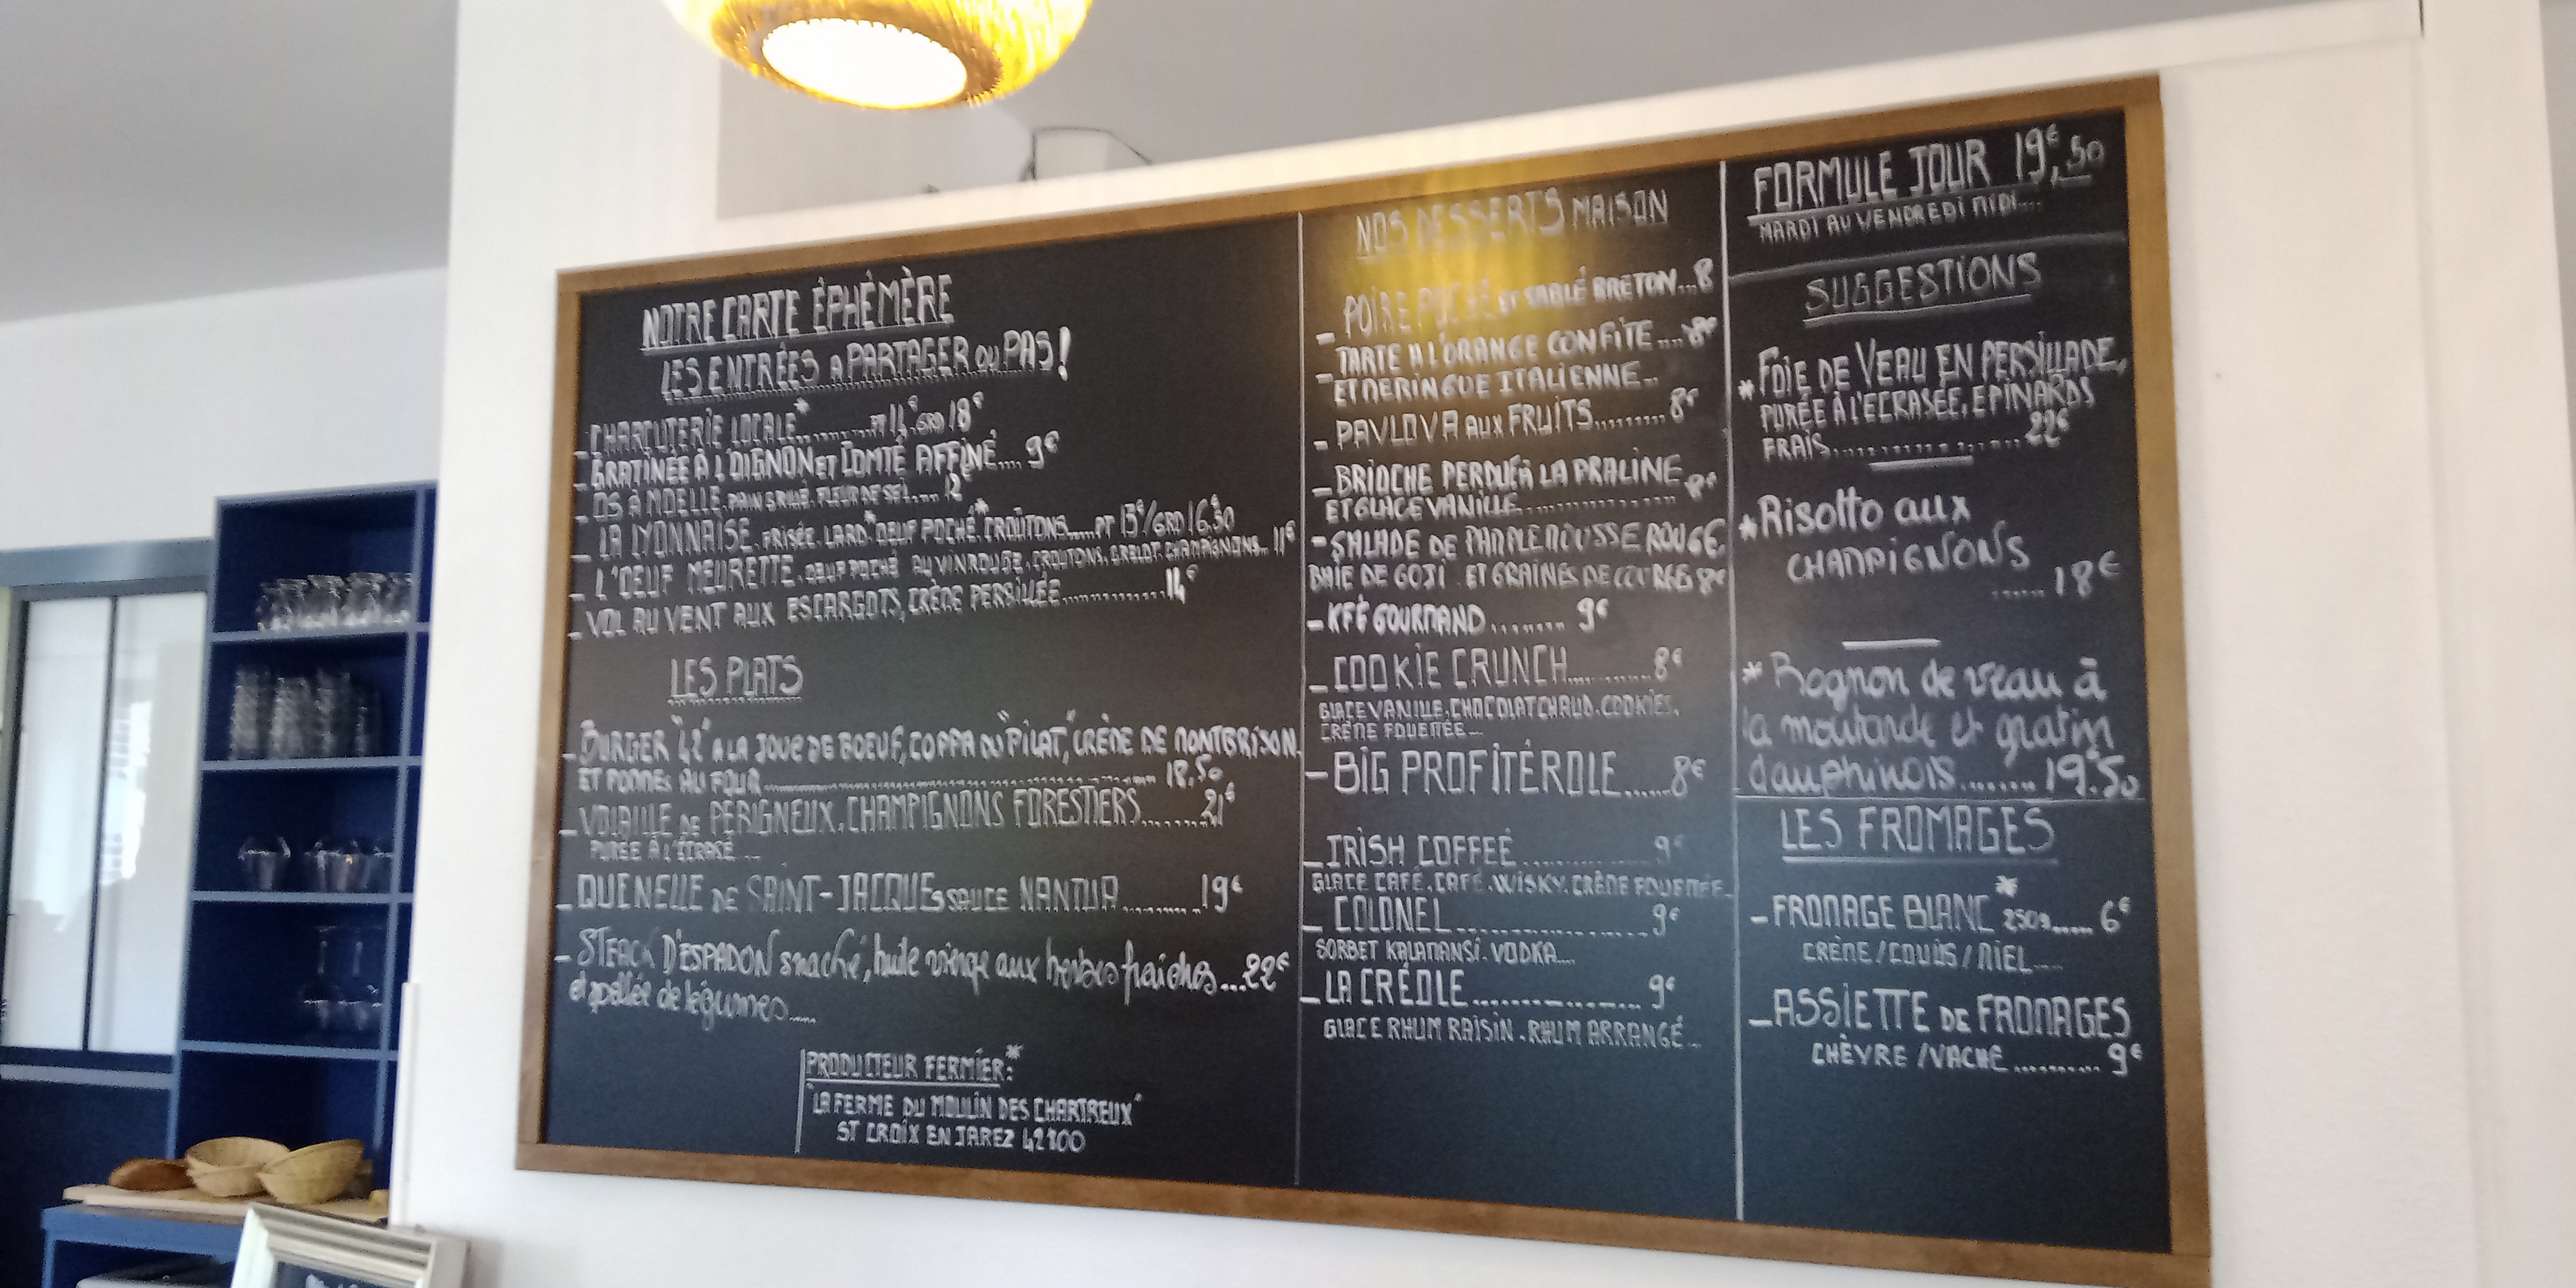 NOTRE CARTE ÉPHÉMÈRE
LES ENTRÉES A PARTAGER OU PAS!
- CHARCUTERIE LOCALE*.......... PT 14€. GRD 18€
- GRATINÉE À L'OIGNON ET COMTÉ AFFINÉ.... 9€
- OS À MOELLE. PAIN GRILLÉ. FLEUR DE SEL.... 12€
- LA LYONNAISE. FRISÉE. LARD* OEUF POCHÉ* CROÛTONS.....PT 13€/GRD 16.50
- L'OEUF MEURETTE. OEUF POCHÉ AU VIN ROUGE. CROUTONS. GRELOT. CHAMPIGNONS.. 11€
- VOL AU VENT AUX ESCARGOTS, CRÈME PERSILLÉE..............14€
LES PLATS
- BURGER "42" A LA JOUE DE BOEUF, COPPA DU "PILAT", CRÈME DE MONTBRISON.
ET POMMES AU FOUR .......... 18.50
- VOLAILLE DE PÉRIGNEUX. CHAMPIGNONS FORESTIERS........21€
PURÉE À L'ÉCRASÉ ...
- QUENELLE DE SAINT-JACQUES SAUCE NANTUA..........19€
- STEACK D'ESPADON snaché, huile vierge aux herbes fraiches...22€
et poêlée de légumes....
PRODUCTEUR FERMIER*:
"LA FERME DU MOULIN DES CHARTREUX"
ST CROIX EN JAREZ 42800
NOS DESSERTS MAISON
- POIRE POCHÉE ET SABLÉ BRETON...8
- TARTE A L'ORANGE CONFITE....8€
ET MERINGUE ITALIENNE..
- PAVLOVA AUX FRUITS.........8€
- BRIOCHE PERDUE À LA PRALINE
ET GLACE VANILLE.................8€
- SALADE DE PAMPLEMOUSSE ROUGE.
BAIE DE GOJI. ET GRAINES DE COURGES 8€
- KFÉ GOURMAND........ 9€
- COOKIE CRUNCH...........8€
GLACE VANILLE. CHOCOLAT CHAUD. COOKIES.
CRÈME FOUETTÉE...
- BIG PROFITÉROLE......8€
- IRISH COFFEE ............ 9€
GLACE CAFÉ. CAFÉ. WISKY. CRÈME FOUETTÉE.
- COLONEL................... 9€
SORBET KALAMANSI. VODKA....
- LA CRÉOLE................ 9€
GLACE RHUM RAISIN. RHUM ARRANGÉ...
FORMULE JOUR 19€,50
MARDI AU VENDREDI MIDI....
SUGGESTIONS
* FOIE DE VEAU EN PERSILLADE,
PURÉE À L'ECRASÉE, EPINARDS
FRAIS...................22€
* Risotto aux
CHAMPIGNONS
......18€
* Rognon de veau à
la moutarde et gratin
dauphinois.......19€50
LES FROMAGES
- FROMAGE BLANC* 250g..... 6€
CRÈME/COULIS/MIEL....
- ASSIETTE DE FROMAGES
CHÈVRE/VACHE.......... 9€